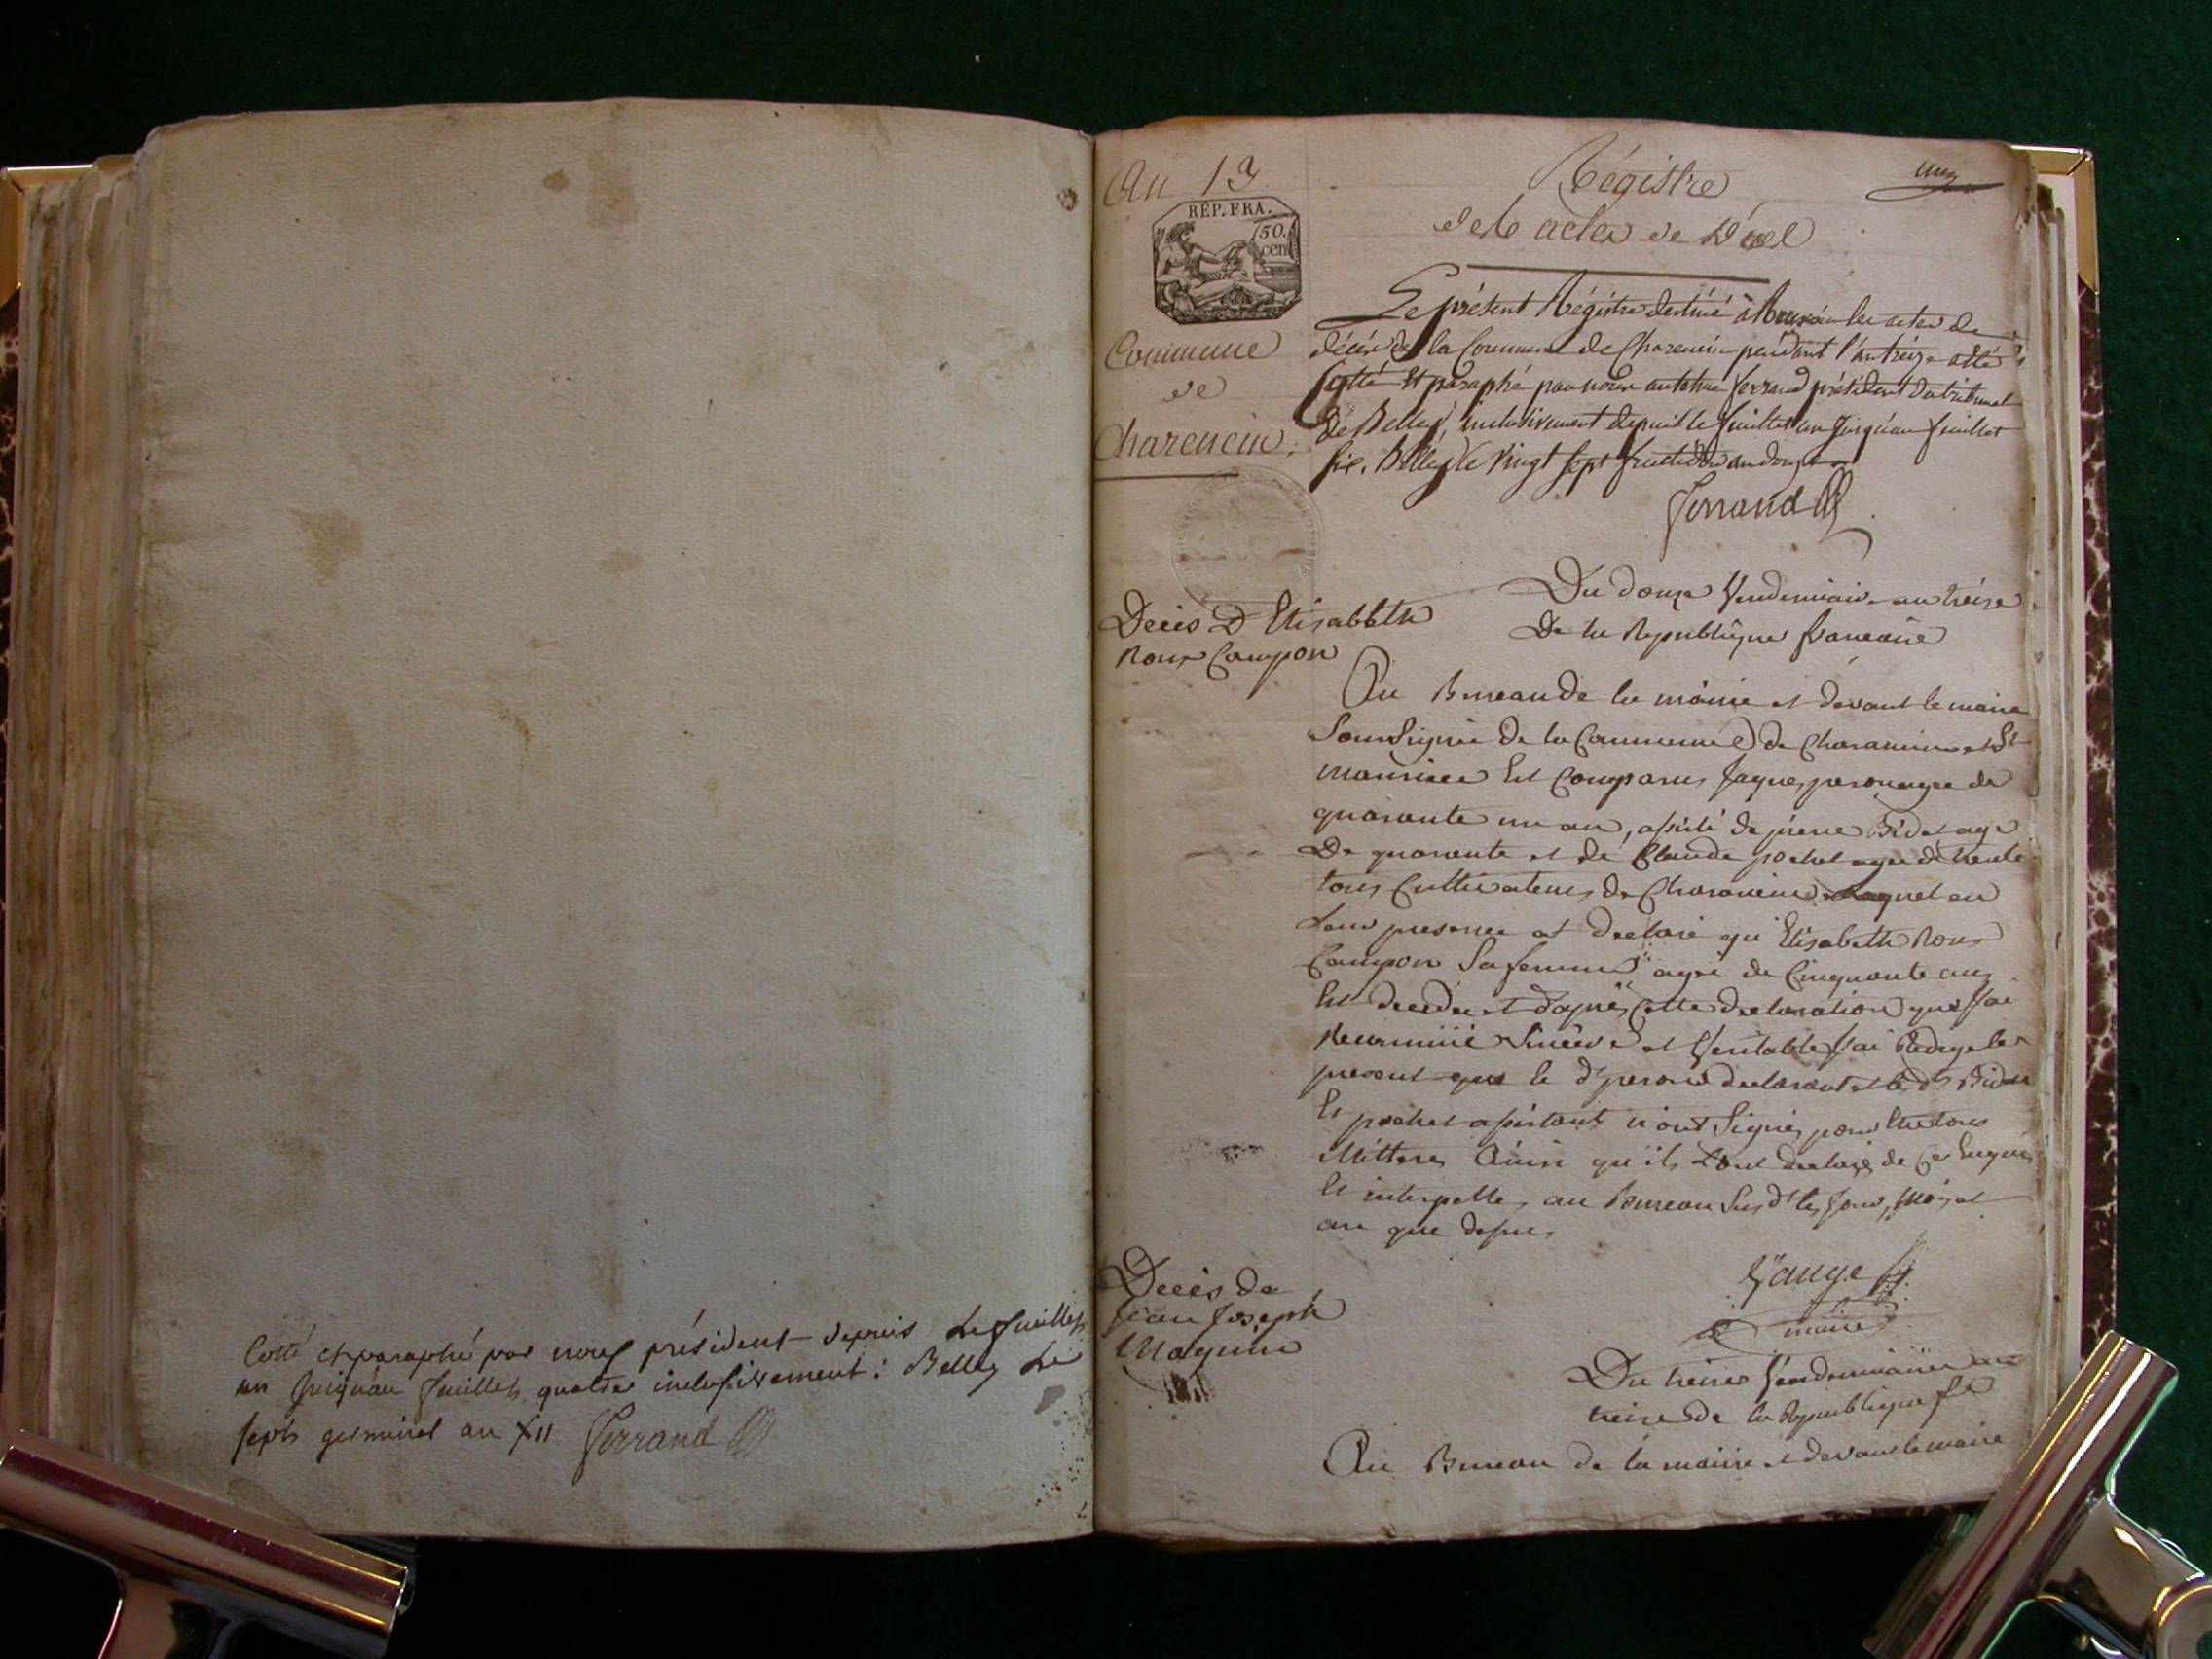 Cotté et paraphé par nous président depuis le feuillet
un jusqu'au feuillet quatre inclusivement : Belley le
sept germinal an XII Ferrand
An 13
RÉP. FRA.
50.
cent
Commune
de
Charencin.
Régistre
des actes de
un
Le présent Régistre destiné à les actes de
décès de la Commune de Charencin pendant l'an treize a été
Cotté et paraphé par nous antoine ferrand président du tribunal
de Belley, inclusivement depuis le feuillet un jusqu'au feuillet
six. Belley le vingt sept fructidor an douze
Ferrand
Deces D'Elisabbeth
Roux Campon
Du douze Vendemiaire an treize
De la Republique francaise
Au Bureau de la mairie et devant le maire
Soussignée de la Commune de Charancin et St
maurice Est Comparus Jaques peron agee de
quarante un an, assisté de pierre Bidet agé
De quarante et de Claude pochet agee de trente
tous Cultivateurs de Charancin lequel en
Leur presence at declaré qu'Elisabeth Roux
Campon Sa femme agée de Cinquante ans
Est decedee et d'aprés Cette declaration que J'ai
Reconnüe Sincére et Veritable J'ai Redigé le
present que le dt peron declarant et les dts Bidet
Et pochet assistants n'ont Signés pour Etre tous
illitteres Ainsi qu'ils L'ont declaré de Ce Enquis
Et interpelles au Bureau Susdt les Jour, Mois et
an que dessus
maire
Decès de
Jean Joseph
Magnin
Du treize Vendemiaire an
treize de la Republique fse
Au Bureau de la mairie et devant le maire